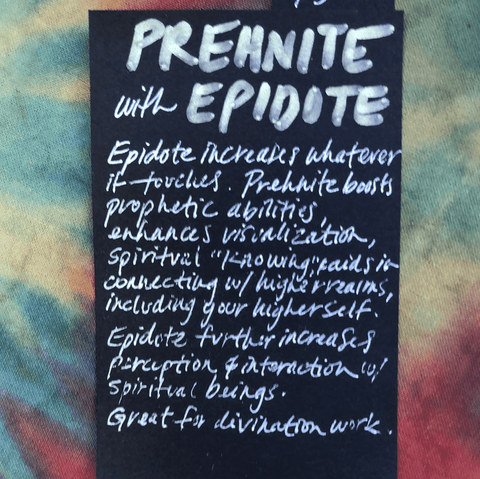 PREHNITE
with EPIDOTE
Epidote increases whatever
it touches. Prehnite boosts
prophetic abilities,
enhances visualization,
spiritual "Knowing", aids in
connecting w/ higher realms,
including your higher self.
Epidote further increases
perception & interaction w/
spiritual beings.
Great for divination work.